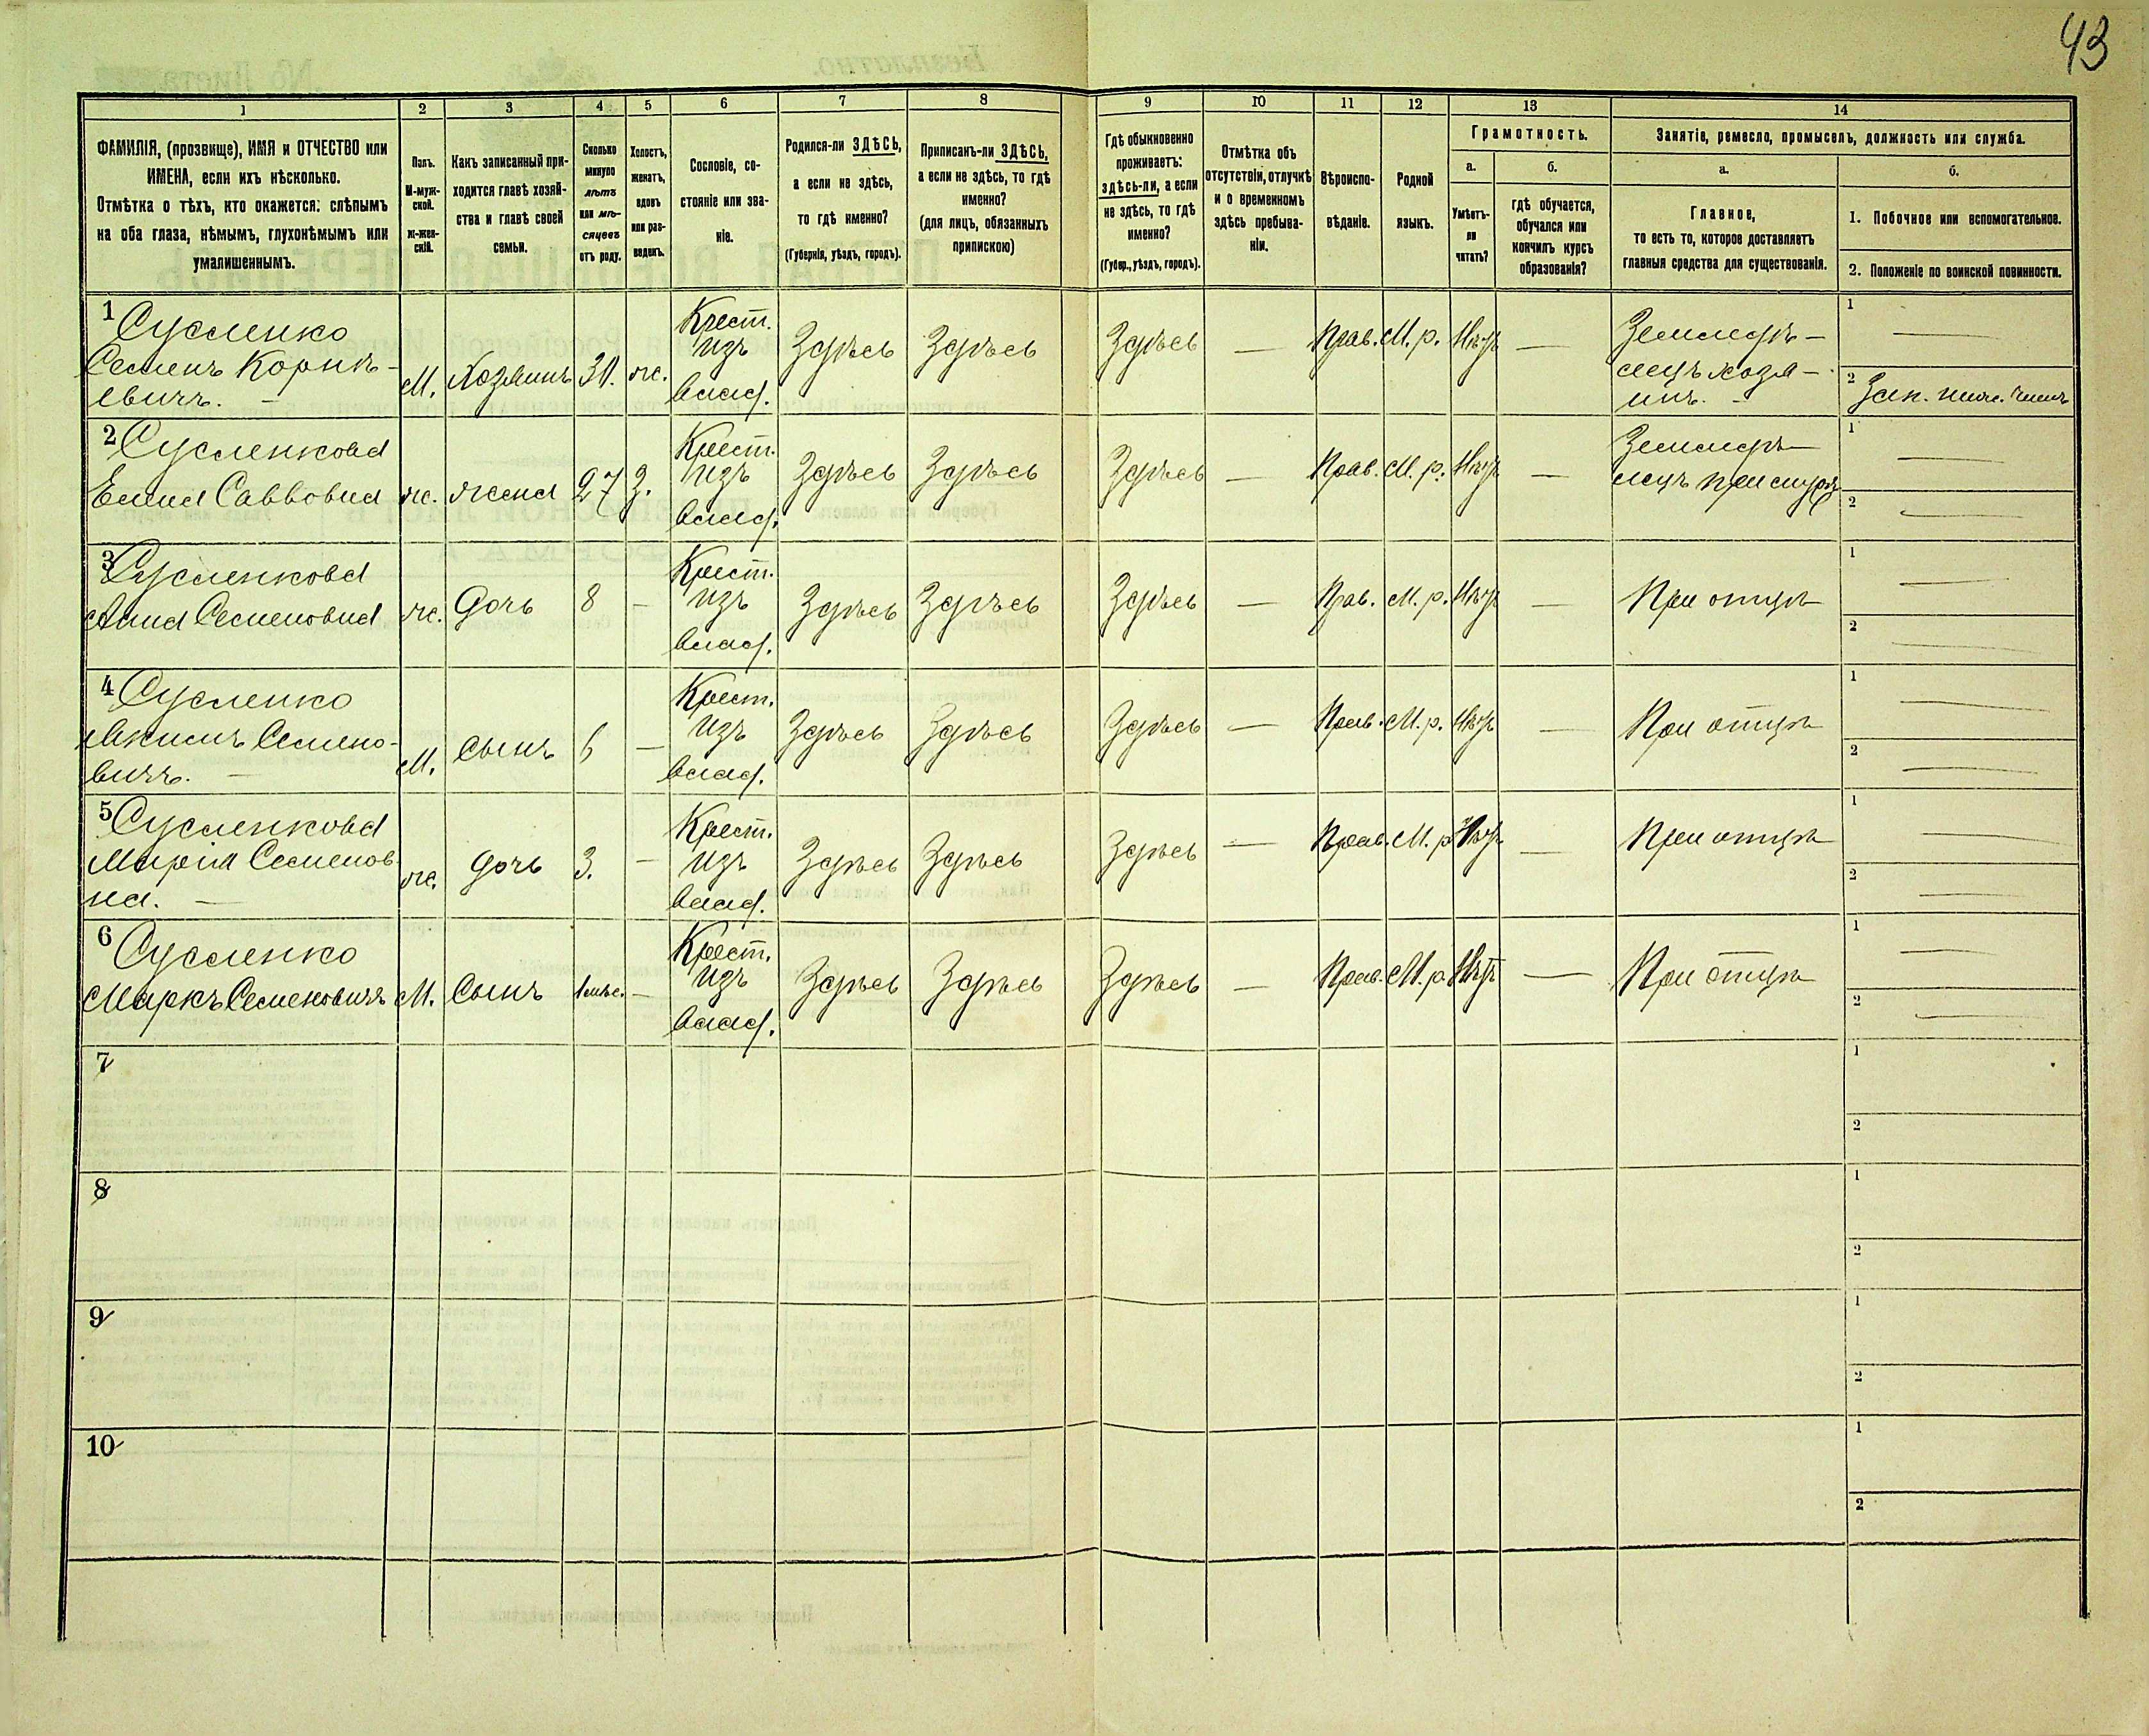 43
1 2 3 4 5 6 7 8 9 10 11 12 13 14
ФАМИЛІЯ, (прозвище), ИМЯ и ОТЧЕСТВО или
ИМЕНА, если ихъ нѣсколько.
Отмѣтка о тѣхъ, кто окажется: слѣпымъ
на оба глаза, нѣмымъ, глухонѣмымъ или
умалишеннымъ.
Полъ.
М-муж-
ской.
ж-жен-
скій.
Какъ записанный при-
ходится главѣ хозяй-
ства и главѣ своей
семьи.
Сколько
минуло
лѣтъ
или мѣ-
сяцевъ
отъ роду.
Холостъ,
женатъ,
вдовъ
или раз-
веденъ.
Сословіе, со-
стояніе или зва-
ніе.
Родился-ли ЗДѢСЬ,
а если не здѣсь,
то гдѣ именно?
(Губернія, уѣздъ, городъ).
Приписанъ-ли ЗДѢСЬ,
а если не здѣсь, то гдѣ
именно?
(для лицъ, обязанныхъ
припискою)
Гдѣ обыкновенно
проживаетъ:
здѣсь-ли, а если
не здѣсь, то гдѣ
именно?
(Губер., уѣздъ, городъ).
Отмѣтка объ
отсутствіи, отлучкѣ
и о временномъ
здѣсь пребыва-
ніи.
Вѣроиспо-
вѣданіе.
Родной
языкъ.
Грамотность.
а.
Умѣетъ-
ли
читать?
б.
гдѣ обучается,
обучался или
кончилъ курсъ
образованія?
Занятіе, ремесло, промыселъ, должность или служба.
а.
Главное,
то есть то, которое доставляетъ
главныя средства для существованія.
б.
1. Побочное или вспомогательное.
2. Положеніе по воинской повинности.
1 Сусленко
Семенъ Корнѣ-
евичъ. —
М.
Хозяинъ
31.
ж.
Крест.
изъ
влад.
Здѣсь
Здѣсь
Здѣсь
—
Прав.
М. р.
Нѣтъ
—
Земледѣ-
лецъ хозя-
инъ. -
1 —
2
2 Сусленкова
Савовна
ж.
жена
27
З.
Крест.
изъ
влад.
Здѣсь
Здѣсь
Здѣсь
—
Прав.
М. р.
Нѣтъ
—
Земледѣ-
лецъ при
1 —
2 —
3 Сусленкова
Анна Семеновна
ж.
дочь
8
—
Крест.
изъ
влад.
Здѣсь
Здѣсь
Здѣсь
—
Прав.
М. р.
Нѣтъ
—
При отцѣ
1 —
2 —
4 Сусленко
Семено-
вичъ. —
М.
сынъ
6
—
Крест.
изъ
влад.
Здѣсь
Здѣсь
Здѣсь
—
Прав.
М. р.
Нѣтъ
—
При отцѣ
1 —
2 —
5 Сусленкова
Марія Семенов
на. —
ж.
дочь
3.
—
Крест.
изъ
влад.
Здѣсь
Здѣсь
Здѣсь
—
Прав.
М. р.
Нѣтъ
—
При отцѣ
1 —
2 —
6 Сусленко
Маркъ Семеновичъ
М.
Сынъ
1 мѣс.
—
Крест.
изъ
влад.
Здѣсь
Здѣсь
Здѣсь
—
Прав.
М. р.
Нѣтъ
—
При отцѣ
1 —
2 —
7
1
2
8
1
2
9
1
2
10
1
2